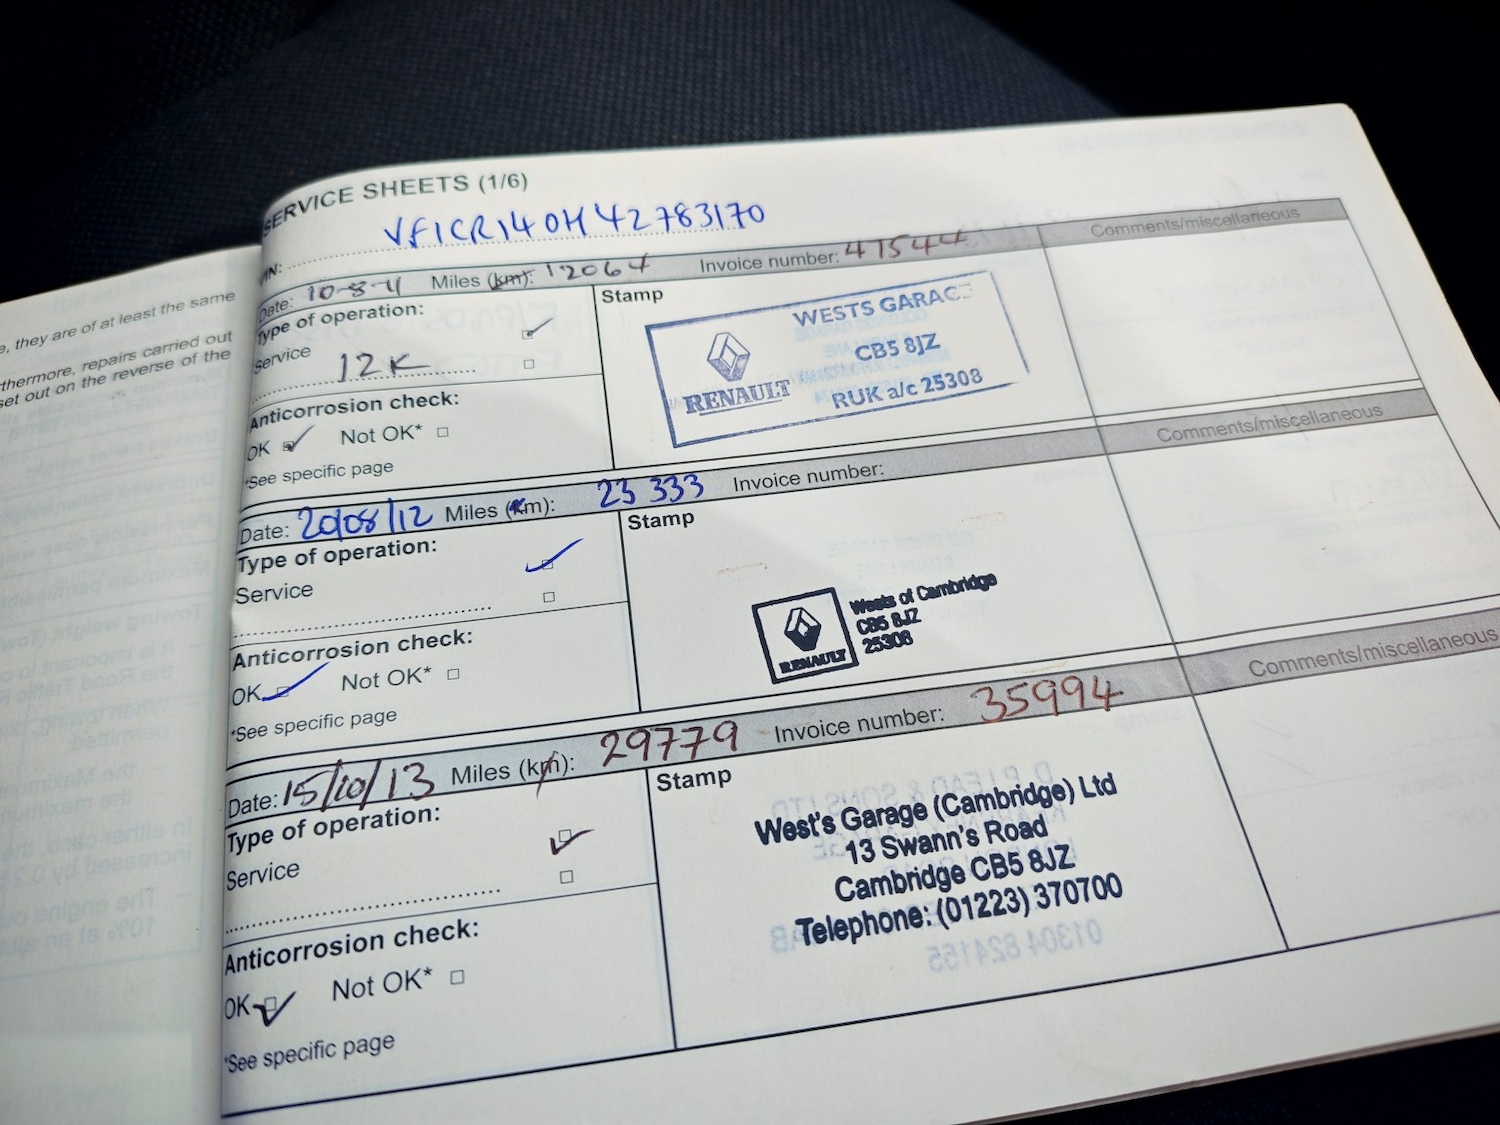 e, they are of at least the same
thermore, repairs carried out
set out on the reverse of the
SERVICE SHEETS (1/6)
VIN: VF1CR140H42783170
Date: 10-8-11 Miles (km): 12064 Invoice number: 47544 Comments/miscellaneous
Type of operation:
Service
12K
Anticorrosion check:
OK Not OK*
*See specific page
Stamp
WESTS GARAGE
CB5 8JZ
RUK a/c 25308
RENAULT
Date: 20/08/12 Miles (km): 23 333 Invoice number: Comments/miscellaneous
Type of operation:
Service
Anticorrosion check:
OK Not OK*
*See specific page
Stamp
RENAULT
Wests of Cambridge
CB5 8JZ
25308
Date: 15/10/13 Miles (km): 29779 Invoice number: 35994 Comments/miscellaneous
Type of operation:
Service
Anticorrosion check:
OK Not OK*
*See specific page
Stamp
West's Garage (Cambridge) Ltd
13 Swann's Road
Cambridge CB5 8JZ
Telephone: (01223) 370700